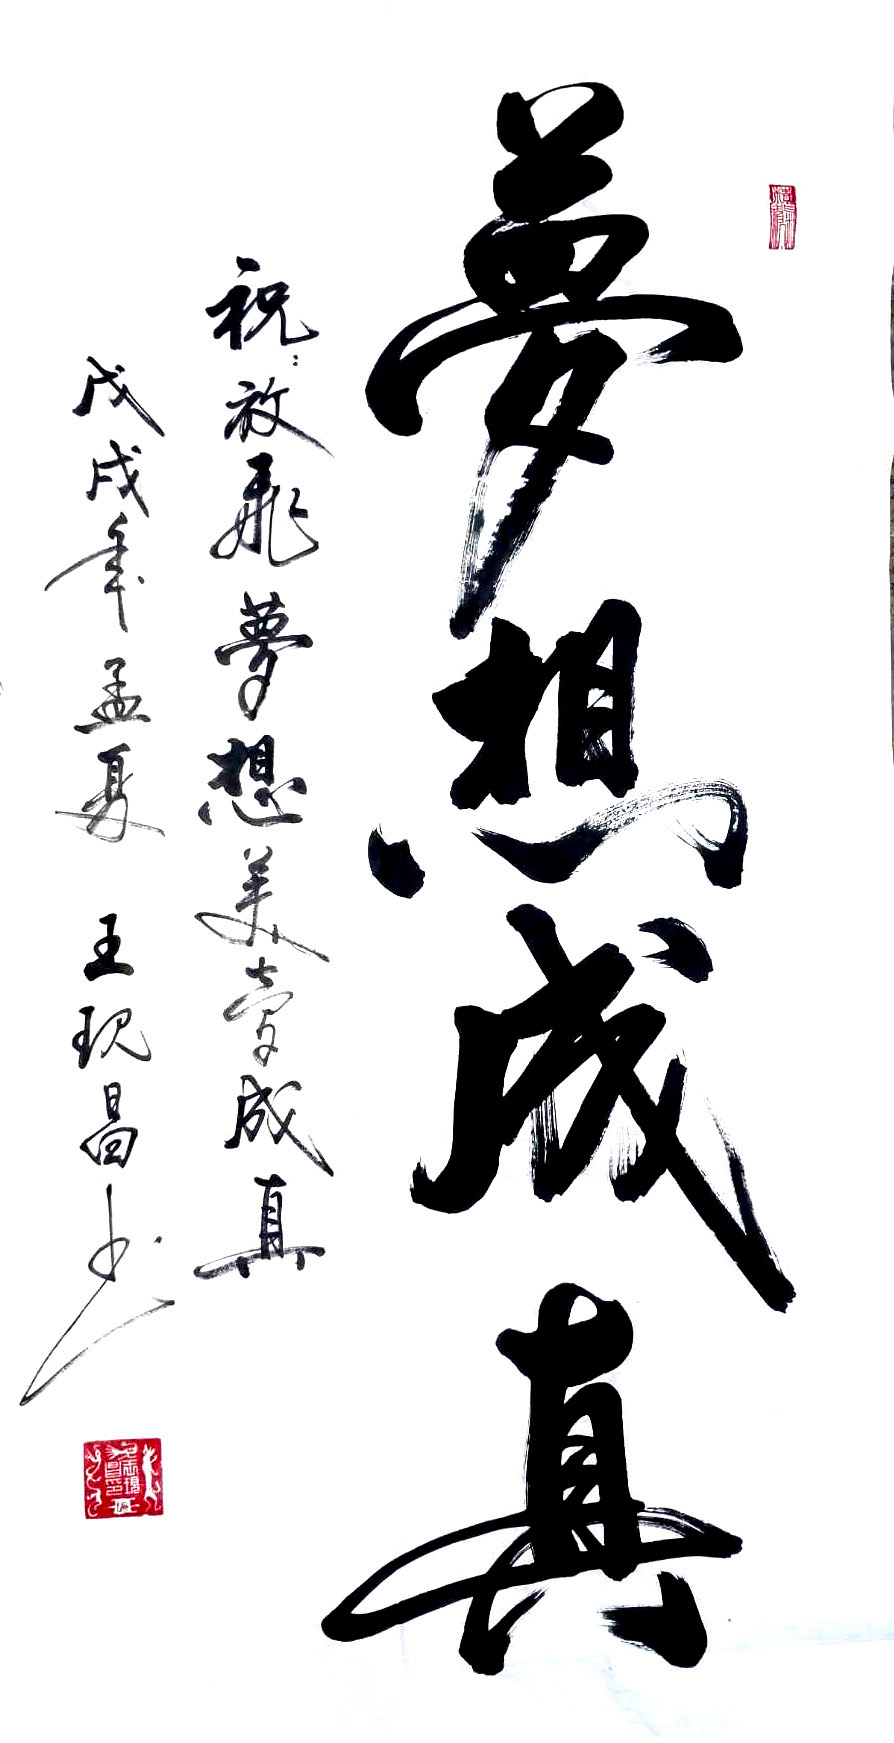 夢想成真
祝:放飛夢想美夢成真
戊戌年孟夏 王現昌书